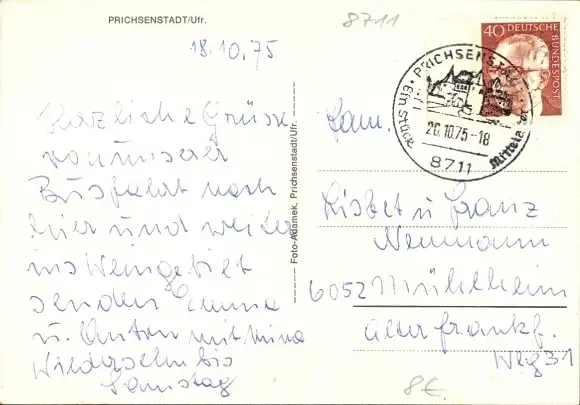 PRICHSENSTADT/Ufr.
8711
18.10.75
Herzliche Grüsse
von unserer
Busfahrt nach
hier und weiter
ins Weingebiet
senden Emma
u. Anton mit Mina
Wiedersehn bis
Samstag
Foto-Adamek, Prichsenstadt/Ufr.
40 DEUTSCHE BUNDESPOST
PRICHSENSTADT
Ein Stück
Mittelalter
20.10.75-18
8711
Fam.
Lisbet u Franz
Neumann
6052 Mühlheim
alter frankf.
Weg 31
8€